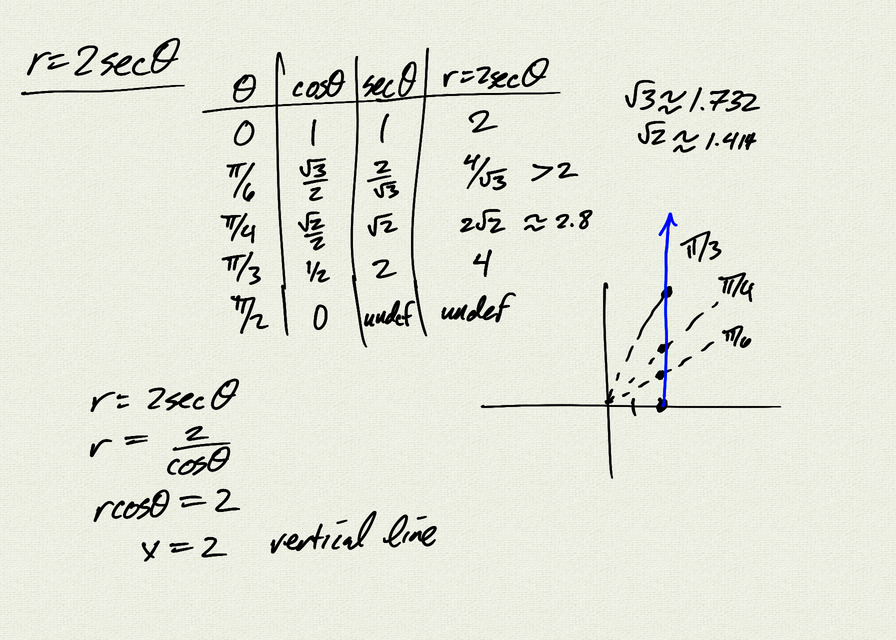 r=2secθ
θ cosθ secθ r=2secθ
0 1 1 2
π/6 √3/2 2/√3 4/√3 >2
π/4 √2/2 √2 2√2 ≈2.8
π/3 1/2 2 4
π/2 0 undef undef
√3≈1.732
√2≈1.414
π/3
π/4
π/6
r=2secθ
r=2/cosθ
rcosθ=2
x=2 vertical line